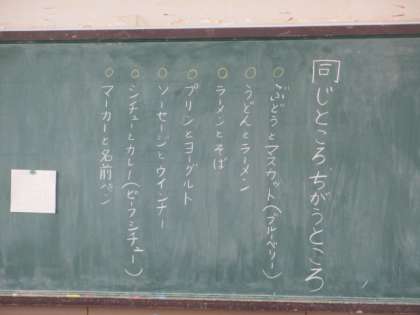 同じところ ちがうところ
○ぶどうとマスカット(ブルーベリー)
○うどんとラーメン
○ラーメンとそば
○プリンとヨーグルト
○ソーセージとウインナー
○シチューとカレー(ビーフシチュー)
○マーカーと名前ペン